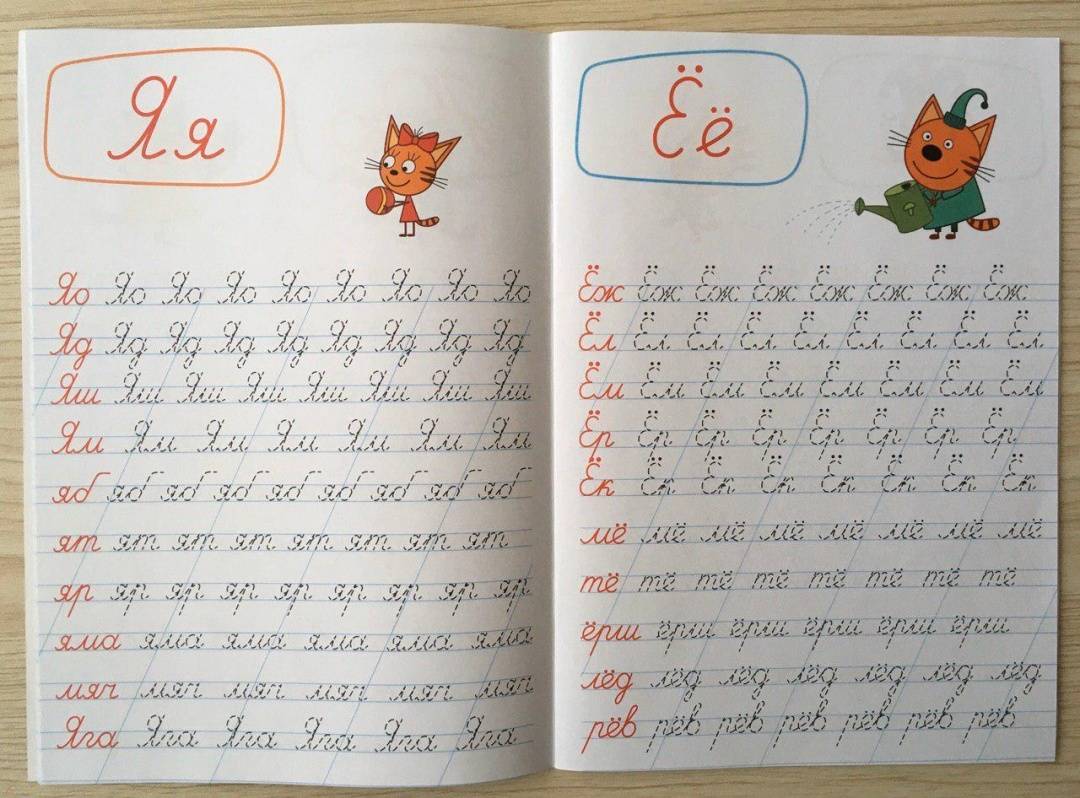 Яя
Яо Яо Яо Яо Яо Яо Яо Яо Яо
Яд Яд Яд Яд Яд Яд Яд Яд Яд
Яш Яш Яш Яш Яш Яш Яш Яш
Ям Ям Ям Ям Ям Ям Ям
яб яб яб яб яб яб яб яб яб
ят ят ят ят ят ят ят ят
яр яр яр яр яр яр яр яр яр
яма яма яма яма яма яма
мяч мяч мяч мяч мяч мяч
Яга Яга Яга Яга Яга Яга
Ёё
Ёж Ёж Ёж Ёж Ёж Ёж Ёж Ёж
Ёл Ёл Ёл Ёл Ёл Ёл Ёл Ёл Ёл
Ём Ём Ём Ём Ём Ём Ём Ём
Ёр Ёр Ёр Ёр Ёр Ёр Ёр Ёр
Ёк Ёк Ёк Ёк Ёк Ёк Ёк Ёк
мё мё мё мё мё мё мё мё
тё тё тё тё тё тё тё тё
ёрш ёрш ёрш ёрш ёрш ёрш
лёд лёд лёд лёд лёд лёд лёд
рёв рёв рёв рёв рёв рёв рёв